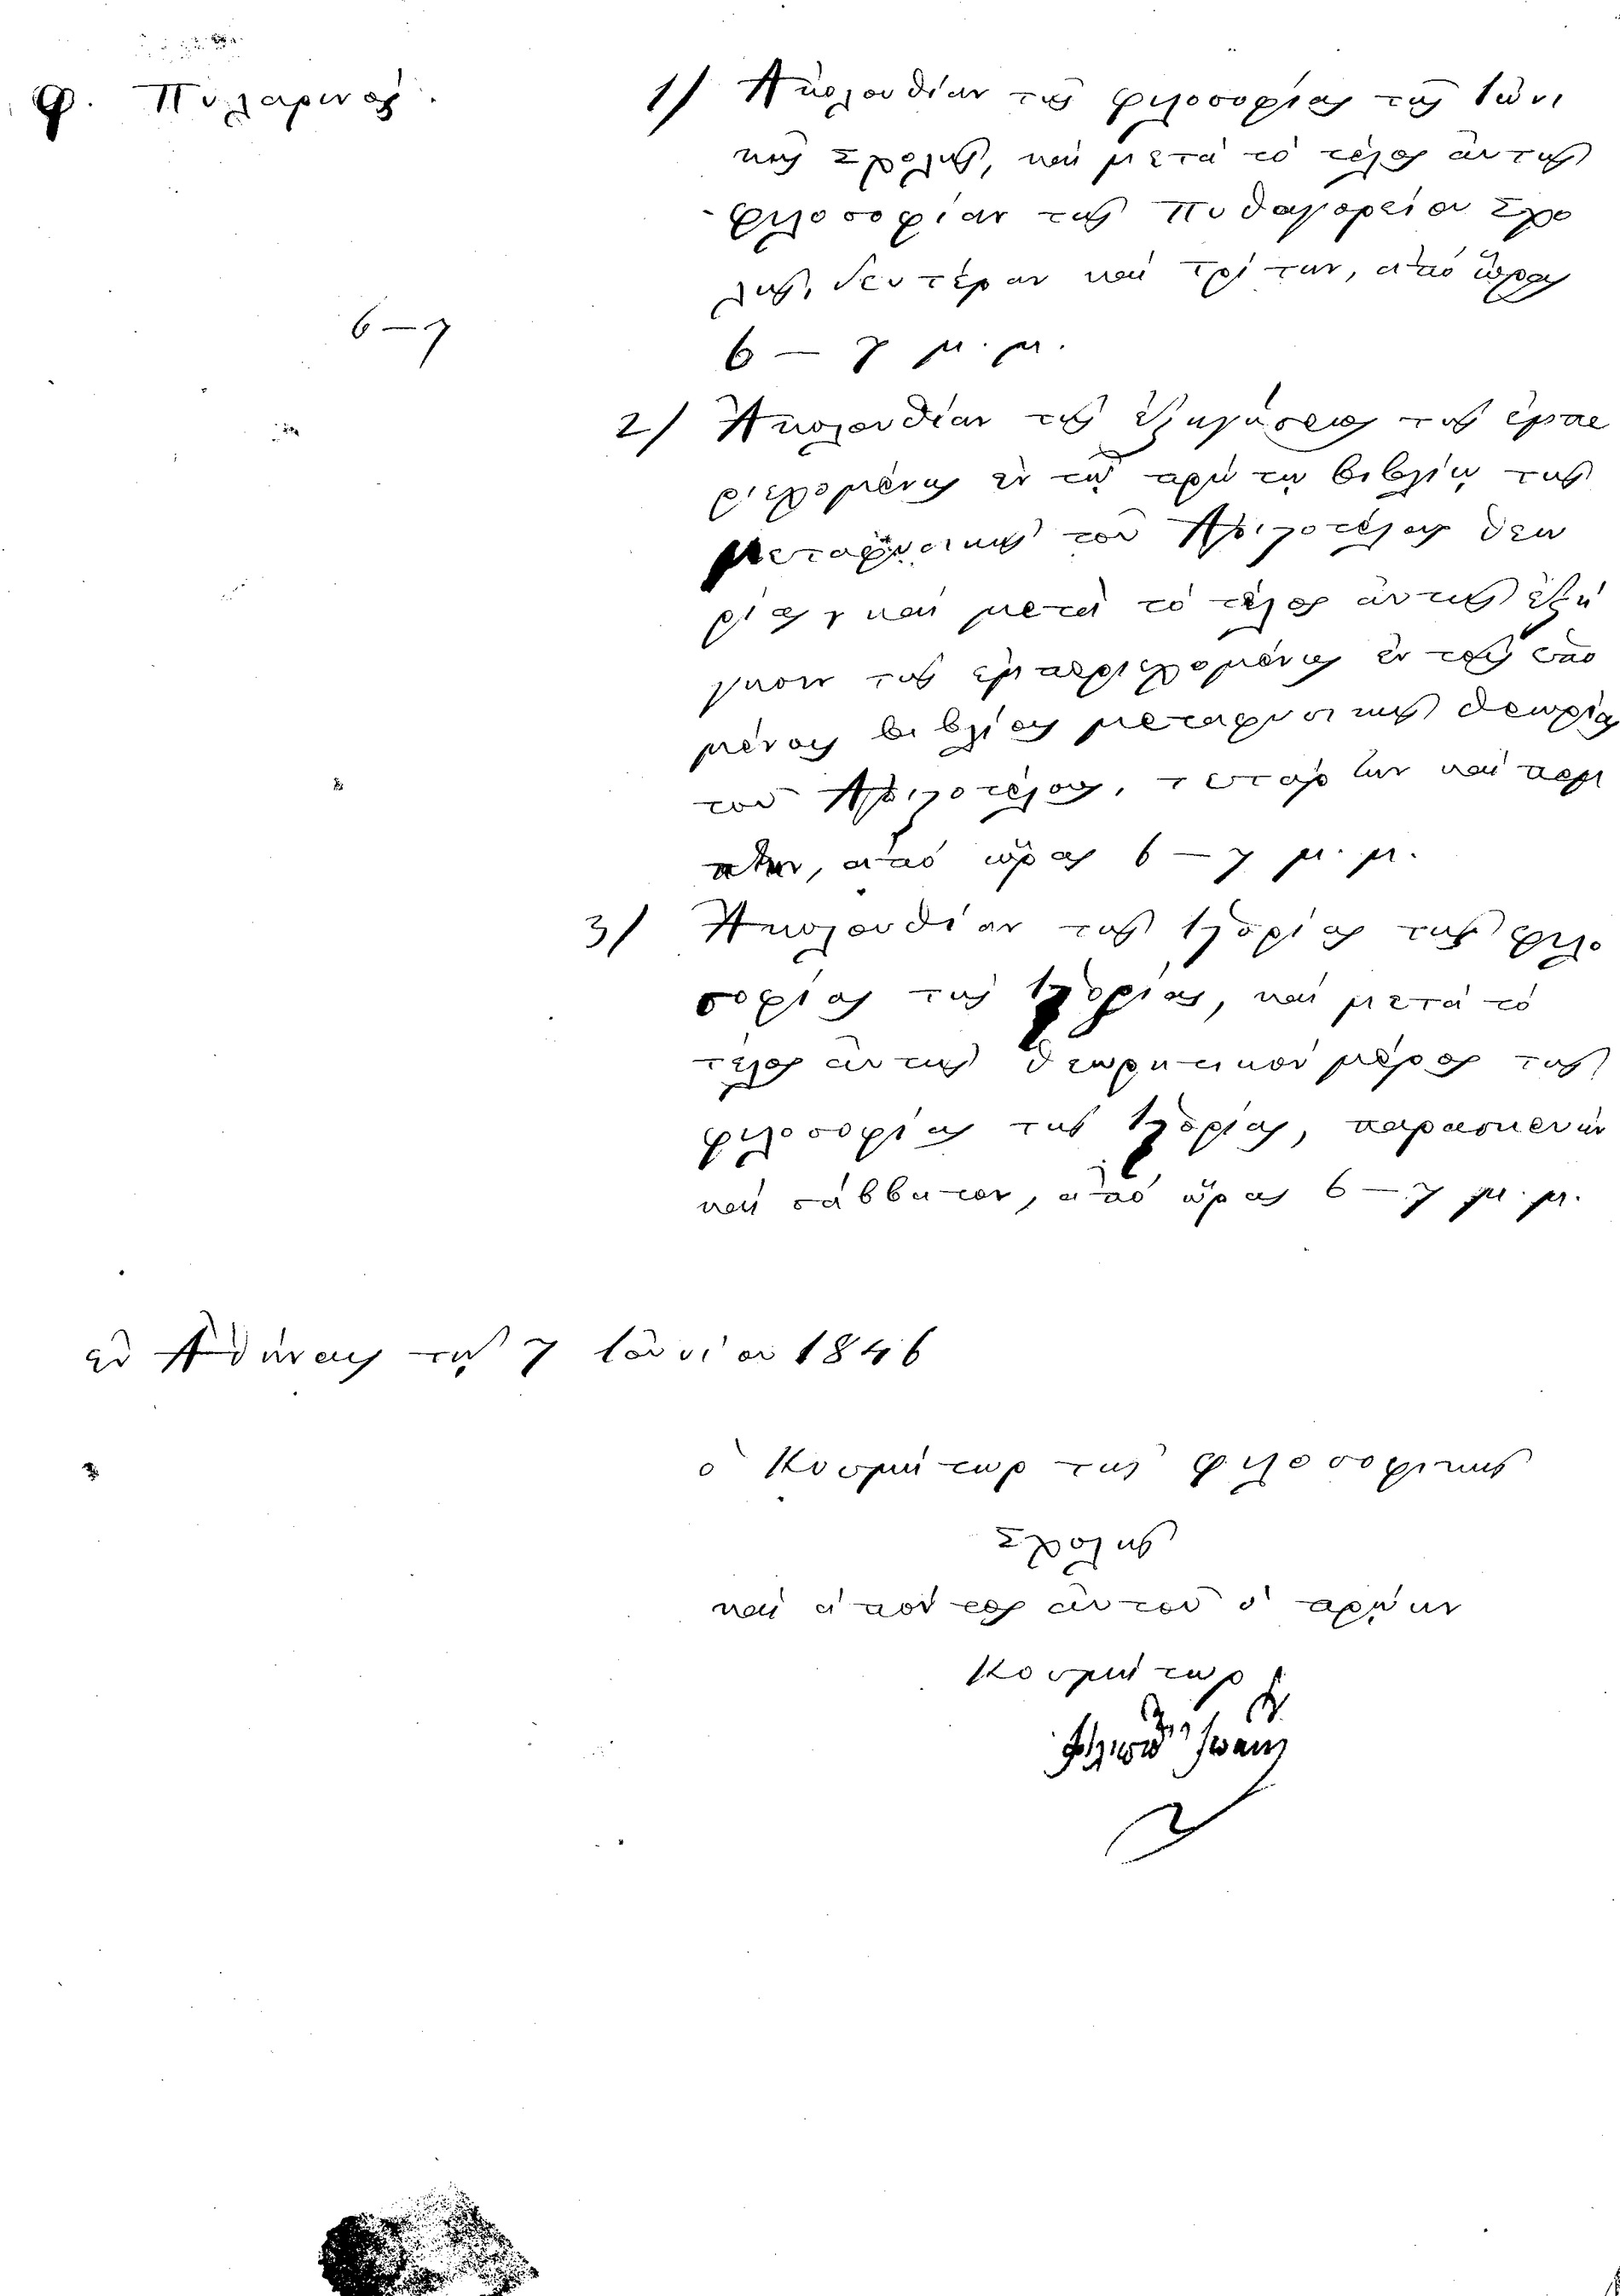 Φ. Πυλαρινός.
1) Ἀκολουθίαν τῆς φιλοσοφίας τῆς Ἰωνι
κῆς Σχολῆς, καὶ μετὰ τὸ τέλος αὐτῆς
φιλοσοφίαν τῆς Πυθαγορείου Σχο
λῆς, δευτέραν καὶ τρίτην, ἀπὸ ὥρας
6 — 7
6 — 7 μ. μ.
2) Ἀκολουθίαν τῆς ἐξηγήσεως τῆς ἐμπε
ριεχομένης ἐν τῷ πρώτῳ βιβλίῳ τῆς
Μεταφυσικῆς τοῦ Ἀριστοτέλους θεω
ρίας, καὶ μετὰ τὸ τέλος αὐτῆς ἐξή
γησιν τῆς ἐμπεριεχομένης ἐν τοῖς ἑπο
μένοις βιβλίοις μεταφυσικῆς θεωρίας
τοῦ Ἀριστοτέλους, τετάρτην καὶ πέμ
πτην, ἀπὸ ὥρας 6 — 7 μ. μ.
3) Ἀκολουθίαν τῆς ἱστορίας τῆς φιλο
σοφίας τῆς ἱστορίας, καὶ μετὰ τὸ
τέλος αὐτῆς θεωρητικὸν μέρος τῆς
φιλοσοφίας τῆς ἱστορίας, παρασκευὴν
καὶ σάββατον, ἀπὸ ὥρας 6 — 7 μ. μ.
ἐν Ἀθήναις τῇ 7 Ἰουνίου 1846
ὁ Κοσμήτωρ τῆς Φιλοσοφικῆς
Σχολῆς
καὶ ἀπόντος αὐτοῦ ὁ πρώην
Κοσμήτωρ